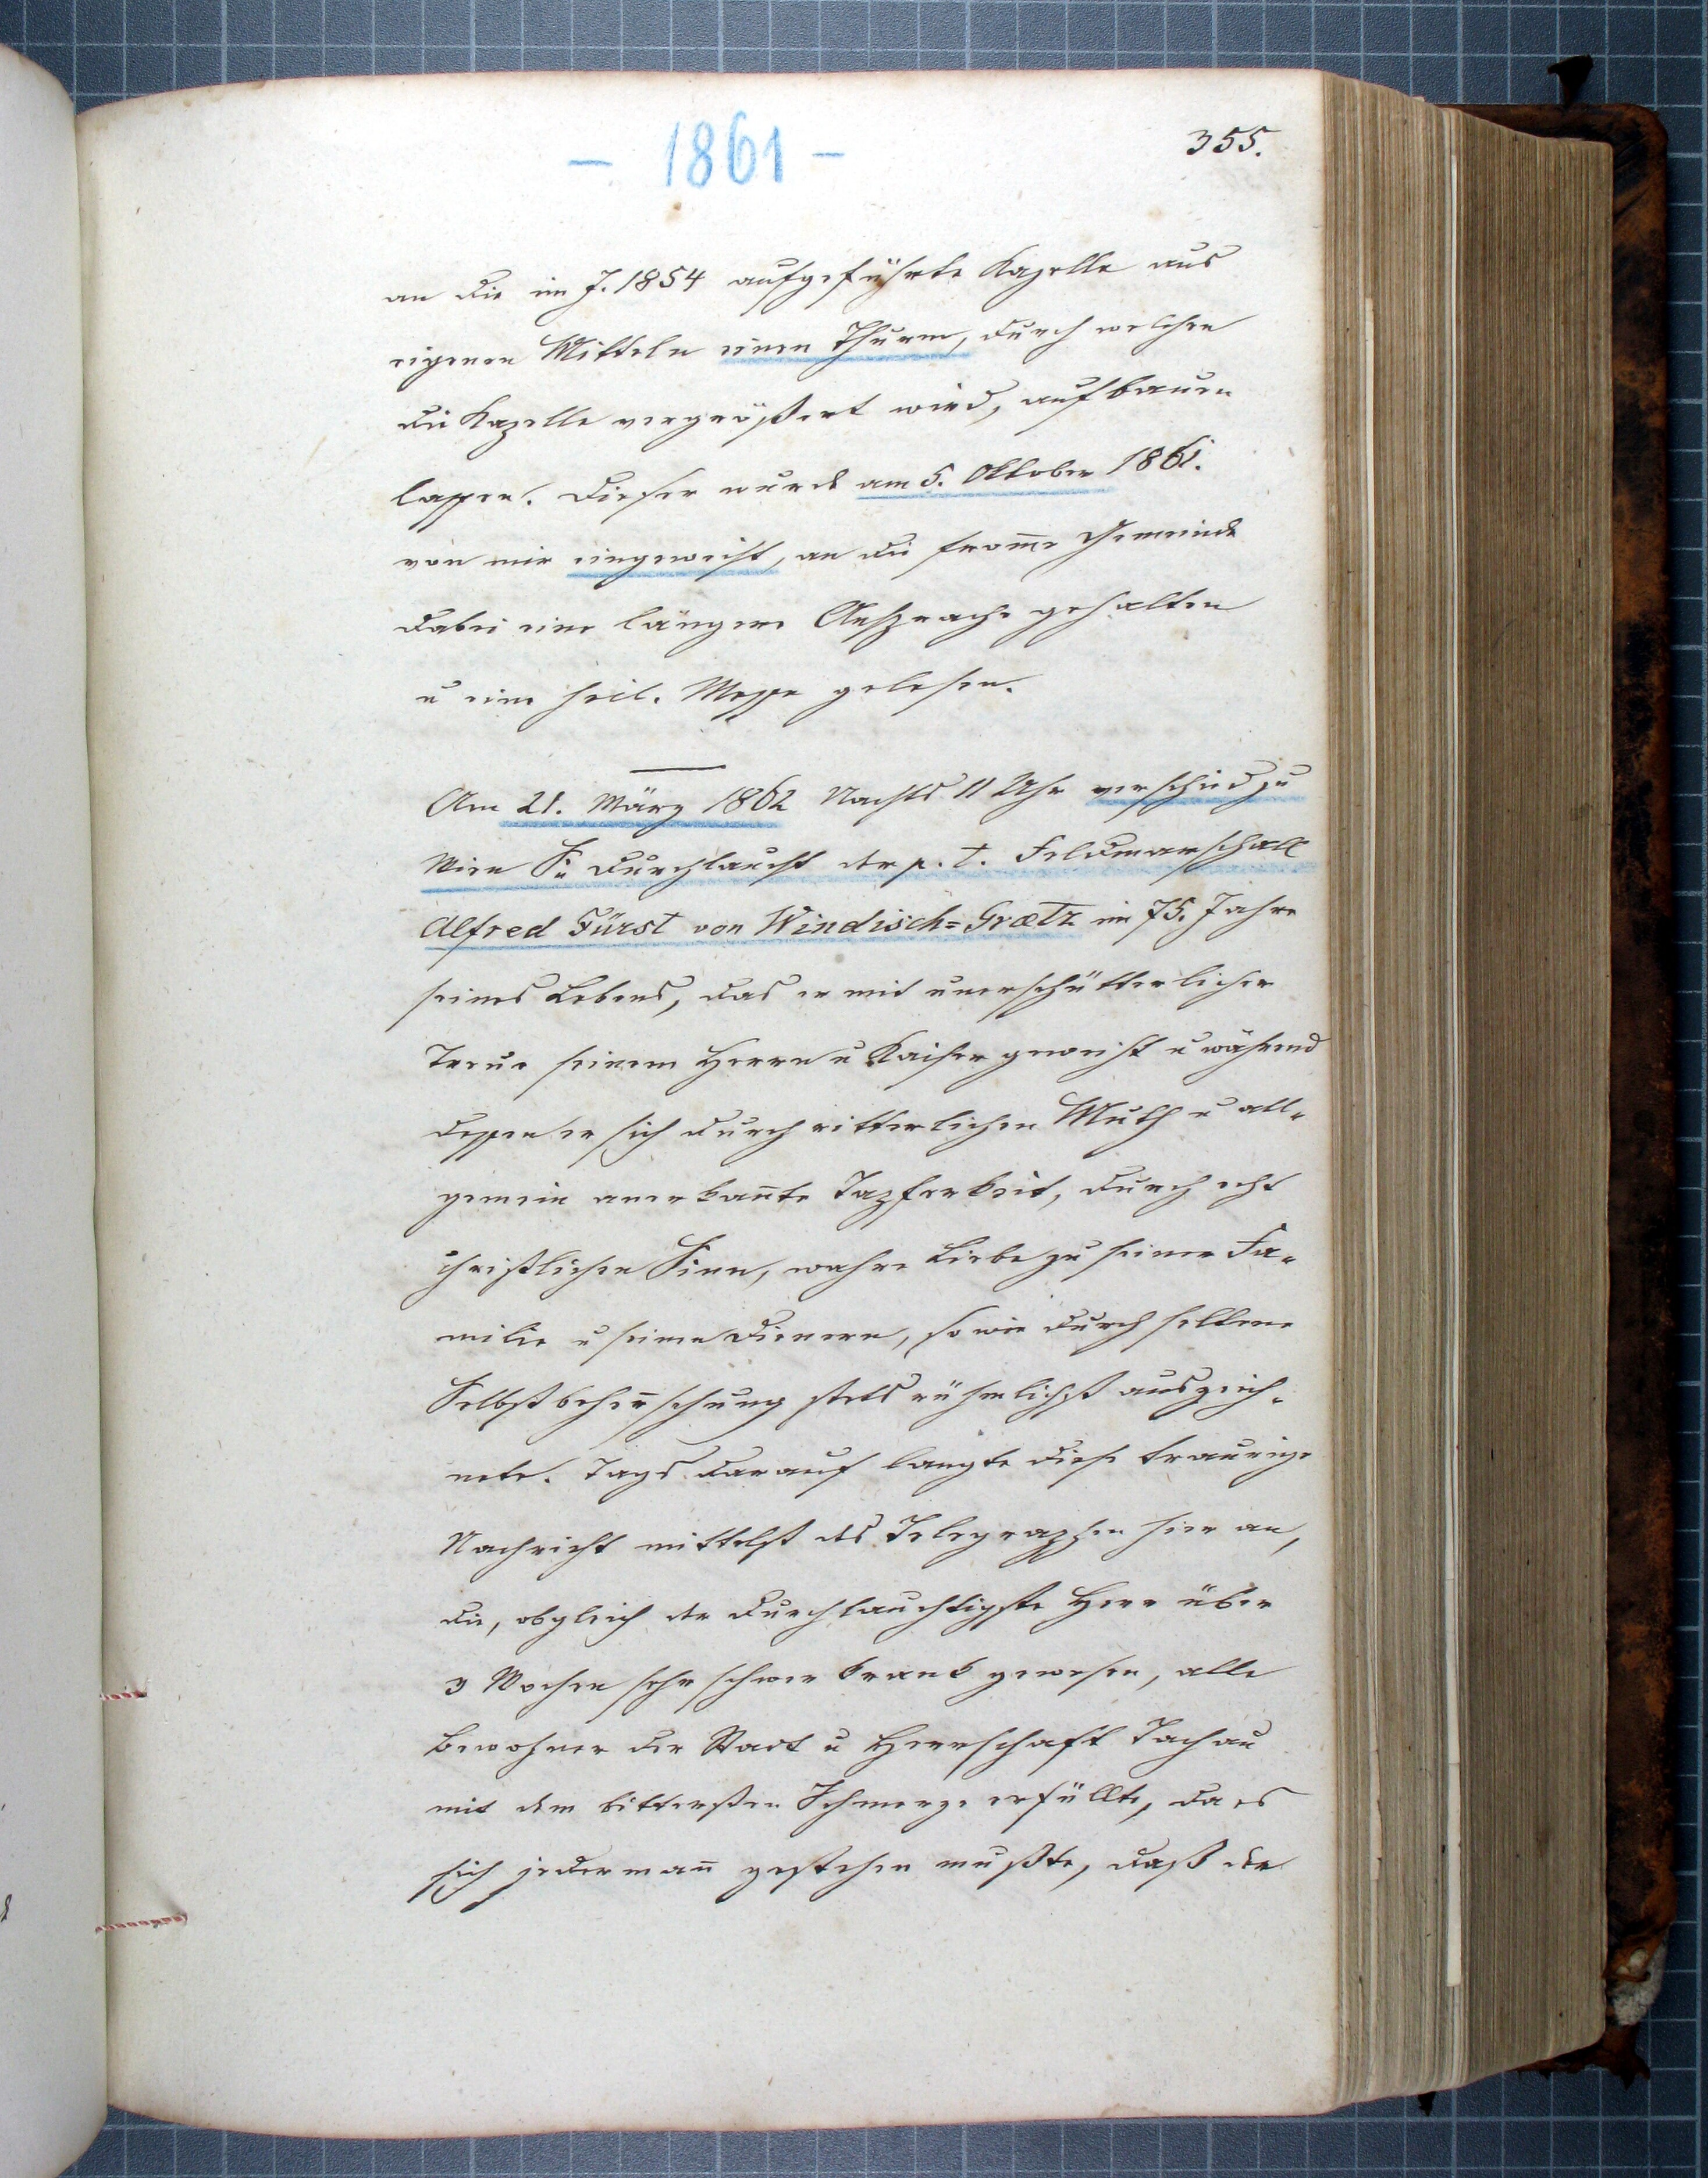 - 1861 -
355.
an die im J. 1854 aufgeführte Kapelle aus
eigenen Mitteln einen Thurm, durch welchen
die Kapelle vergrößert wird, aufbauen
lassen. Dieser wurde am 5. Oktober 1861.
von mir eingeweiht, an die from̅e Gemeinde
dabei eine längere Ansprache gehalten
u eine heil. Messe gelesen.
Am 21. März 1862 Nachts 11 Uhr verschied zu
Wien Se Durchlaucht der p. t. Feldmarschall
Alfred Fürst von Windisch=Grætz im 75. Jahre
seines Lebens, das er mit unerschütterlicher
Treue seinem Herrn u Kaiser geweiht u während
dessen er sich durch ritterlichen Muth u all-
gemein anerkan̅te Tapferkeit, durch echt
christlichen Sinn, wahre Liebe zu seiner Fa-
milie u seinen Dienern, so wie durch seltene
Selbstbeherr̅schung stets rühmlichst auszeich-
nete. Tags darauf langte diese traurige
Nachricht mittelst des Telegraphen hier an,
die, obgleich der durchlauchtigste Herr über
3 Wochen sehr schwer krank gewesen, alle
Bewohner der Stadt u Herrschaft Tachau
mit dem bittersten Schmerze erfüllte, da es
sich jederman̅ gestehen mußte, daß der